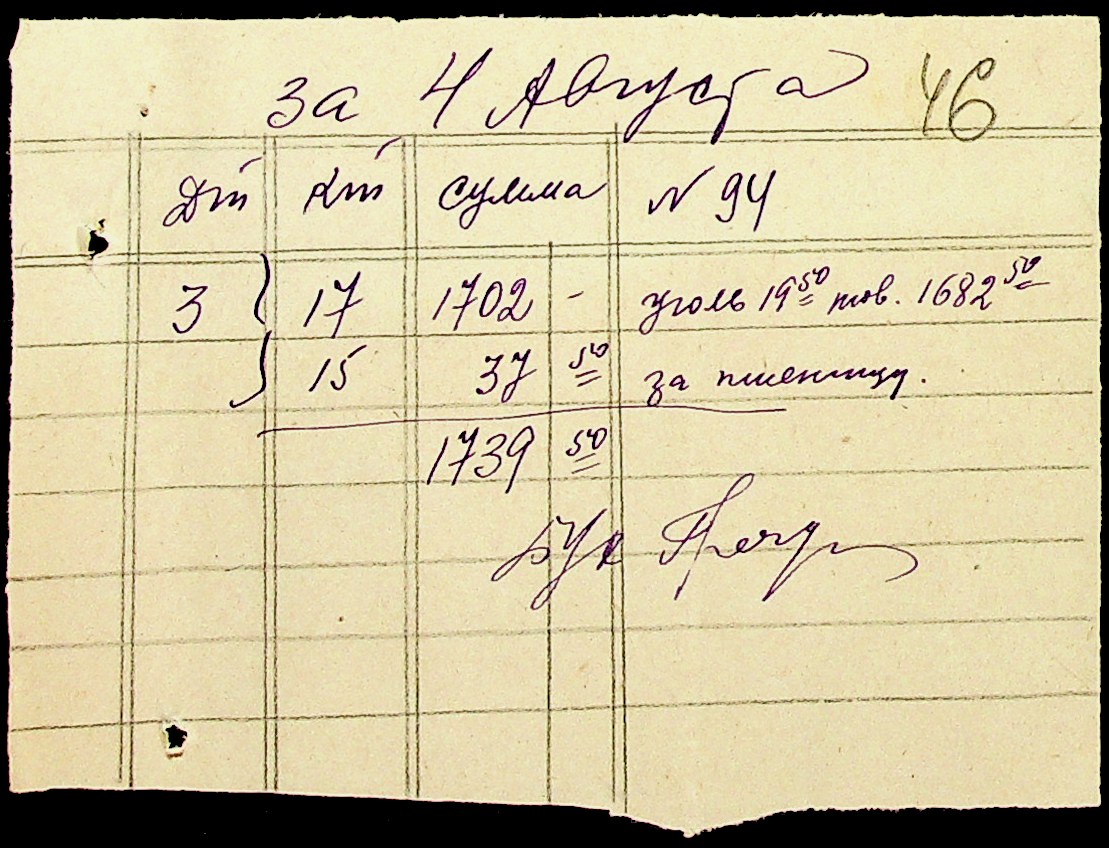 за 4 Августа 46
Дт Кт сумма N 94
3 17 1702 - уголь 19 50 тов. 1682 50
15 37 50 за пшеницу.
1739 50
Бух